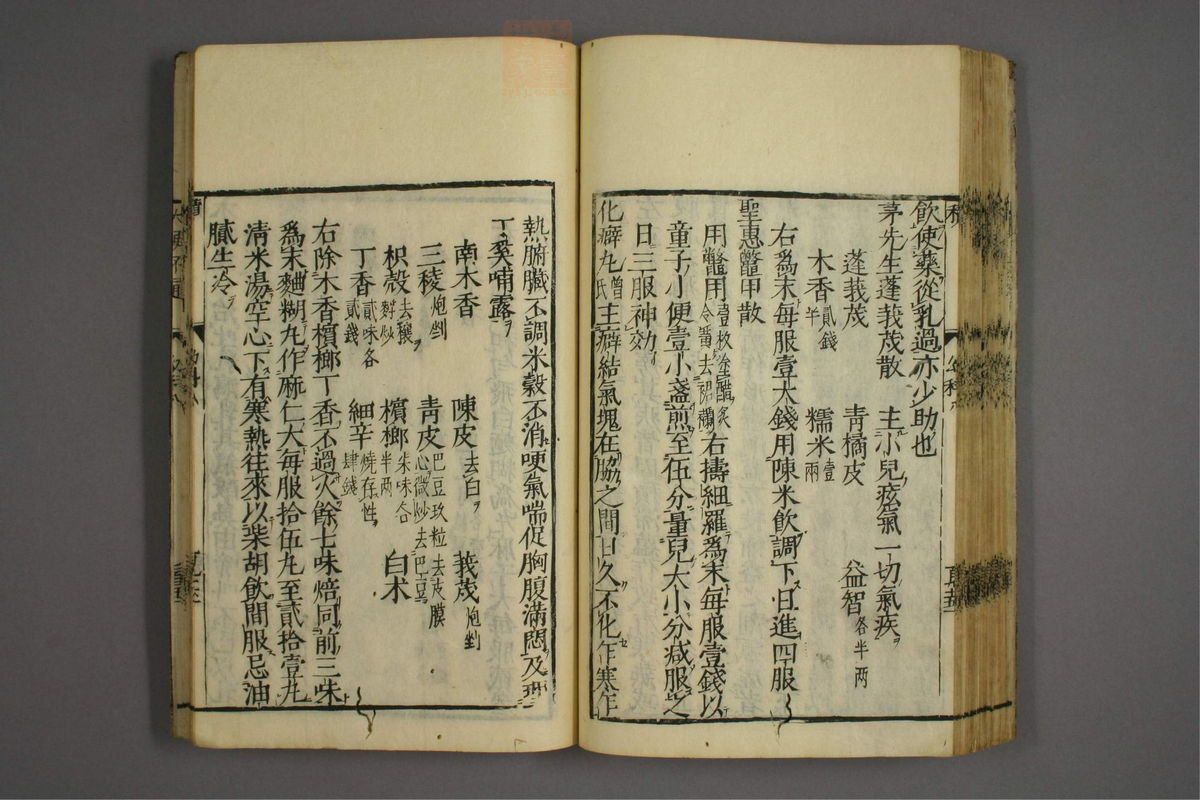 飲使藥從乳過亦少助也
茅先生蓬莪茂散 主小兒痃氣一切氣疾
蓬莪茂 青橘皮 益智各半两
木香貳錢半 糯米壹兩
右爲末毎服壹大錢用陳米飲調下日進四服
聖惠鼈甲散
用鼈甲壹枚塗醋炙令黄去裙襴右擣細羅爲末毎服壹錢以
童子小便壹小盞煎至伍分量兒大小分减服之
日三服神効
化癖丸曾氏主癖結氣塊在脇之間日久不化乍寒乍
熱腑臟不調米穀不消哽氣喘促胸腹滿悶及
丁奚哺露
南木香 陳皮去白 莪茂炮剉
三稜炮剉 青皮巴豆玖粒去皮膜心微炒去巴豆
枳殻去穰麩炒 檳榔 白术
丁香貳味各貳錢 細辛燒存性肆錢
右除木香檳榔丁香不過火餘七味焙同前三味
爲末麵糊丸作麻仁大毎服拾伍丸至貳拾壹丸
清米湯空心下有寒熱往來以柴胡飲間服忌油
膩生冷